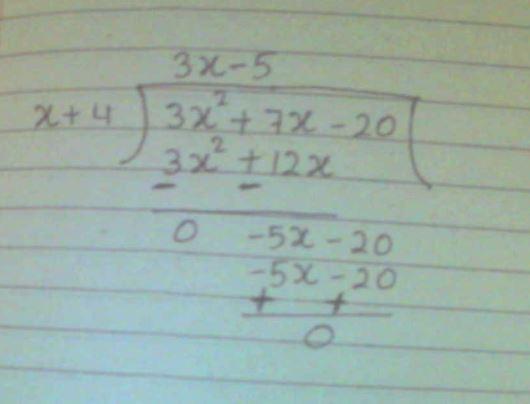 3x-5
x+4 ) 3x²+7x-20 (
3x²+12x
- -
0 -5x-20
-5x-20
+ +
0